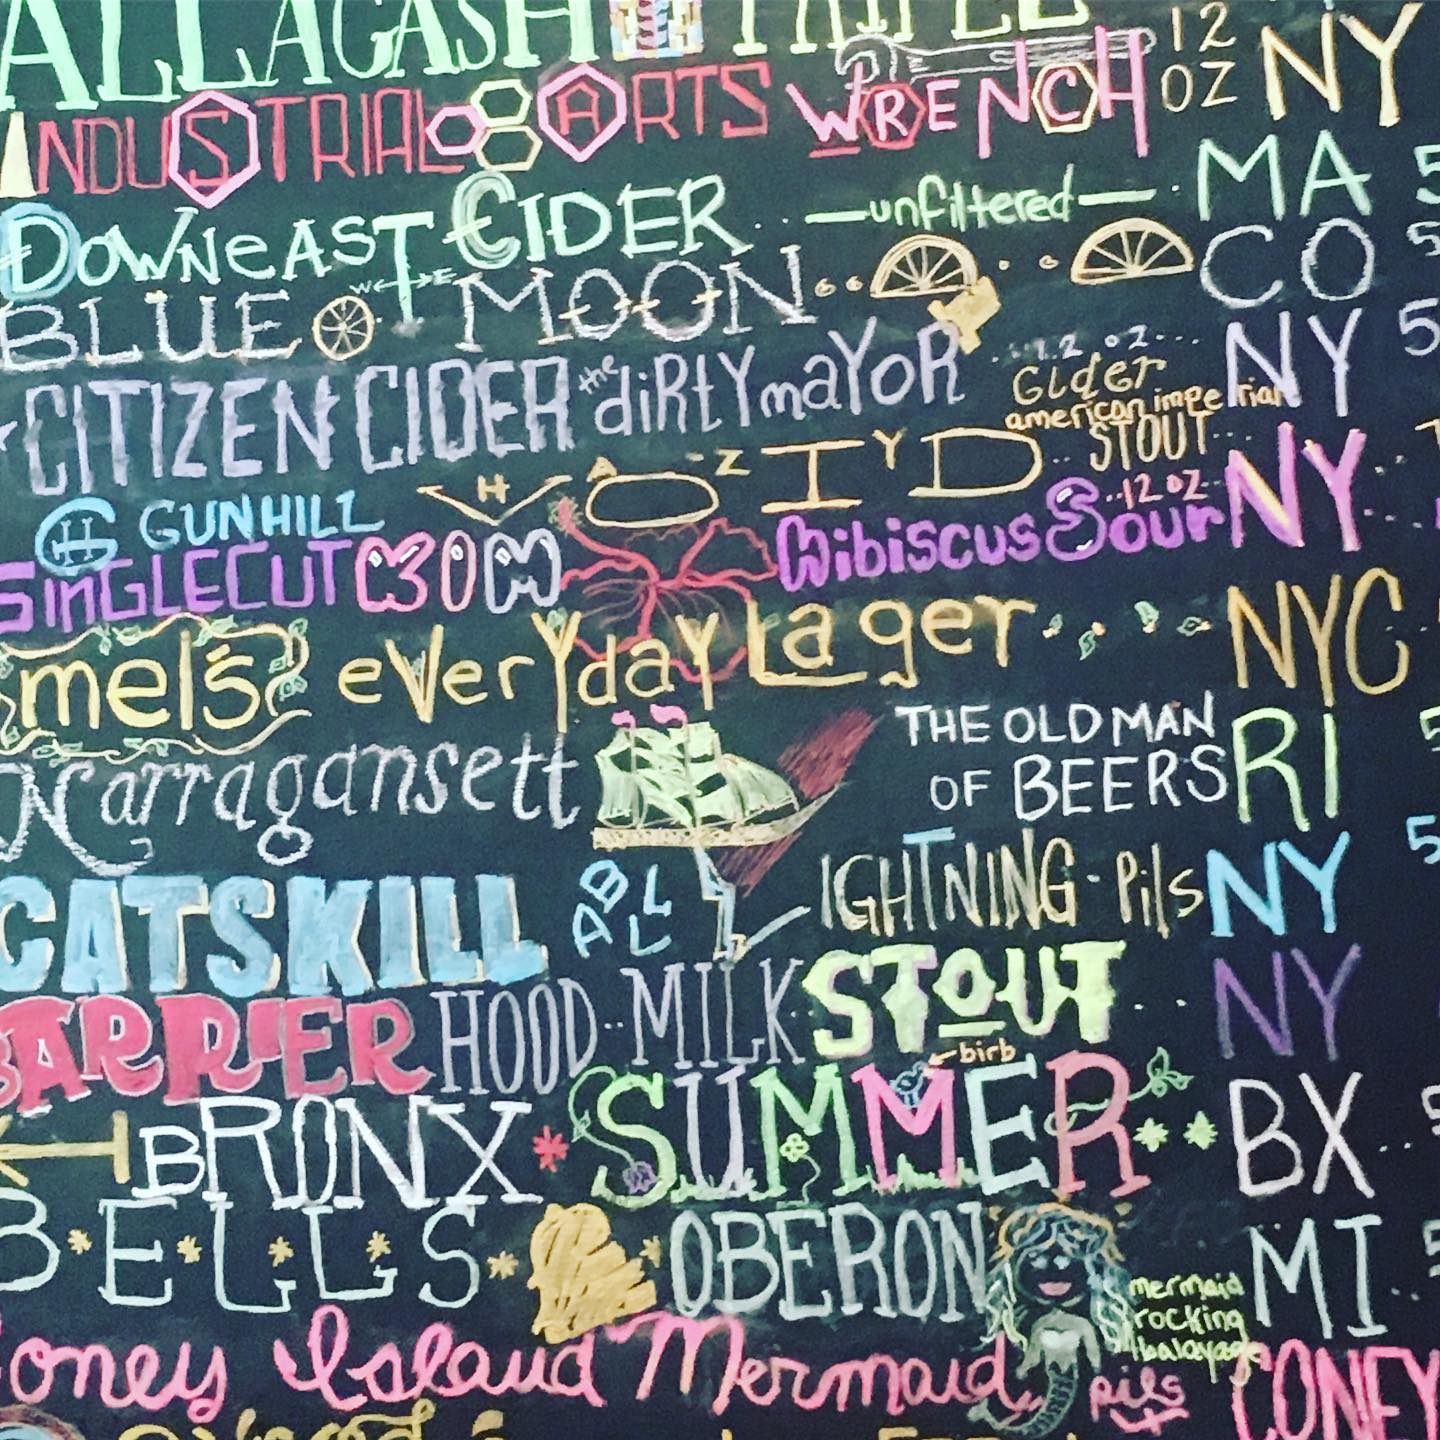 ALLAGASH TRIPEL
INDUSTRIAL ARTS WRENCH 12 OZ NY
DOWNEAST CIDER —unfiltered— MA 5
W E
BLUE MOON CO 5
CITIZEN CIDER the diRtY maYoR 19.2 oz Cider NY 5
american imperial
HAZY VOID STOUT
GH GUNHILL
SINGLECUT KIM Hibiscus Sour 12 oz NY
mel's everYdaY Lager NYC
Narragansett THE OLD MAN OF BEERS RI 5
CATSKILL BALL LIGHTNING-Pils NY 5
BARRIER HOOD MILK STOUT NY
birb
BRONX SUMMER BX 5
BELLS OBERON MI 5
mermaid rocking balayage
Coney Island Mermaid pils CONEY